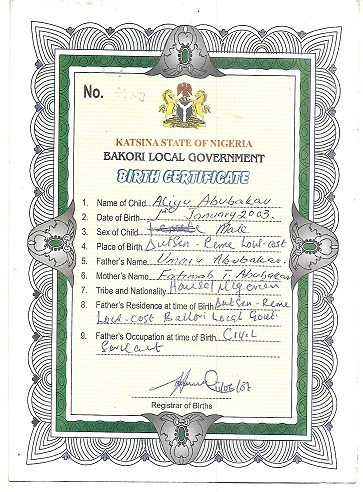 No.
KATSINA STATE OF NIGERIA
BAKORI LOCAL GOVERNMENT
BIRTH CERTIFICATE
1. Name of Child Aliyu Abubakar
2. Date of Birth 1st January 2003.
3. Sex of Child Male
4. Place of Birth Dutsen-Reme Low-cost
5. Father's Name Ummaru Abubakar
6. Mother's Name Fatimah T. Abubakar
7. Tribe and Nationality Hausa/Nigerian
8. Father's Residence at time of Birth Dutsen-Reme
Low-cost Bakori Local Govt
9. Father's Occupation at time of Birth Civil
Servant
Registrar of Births